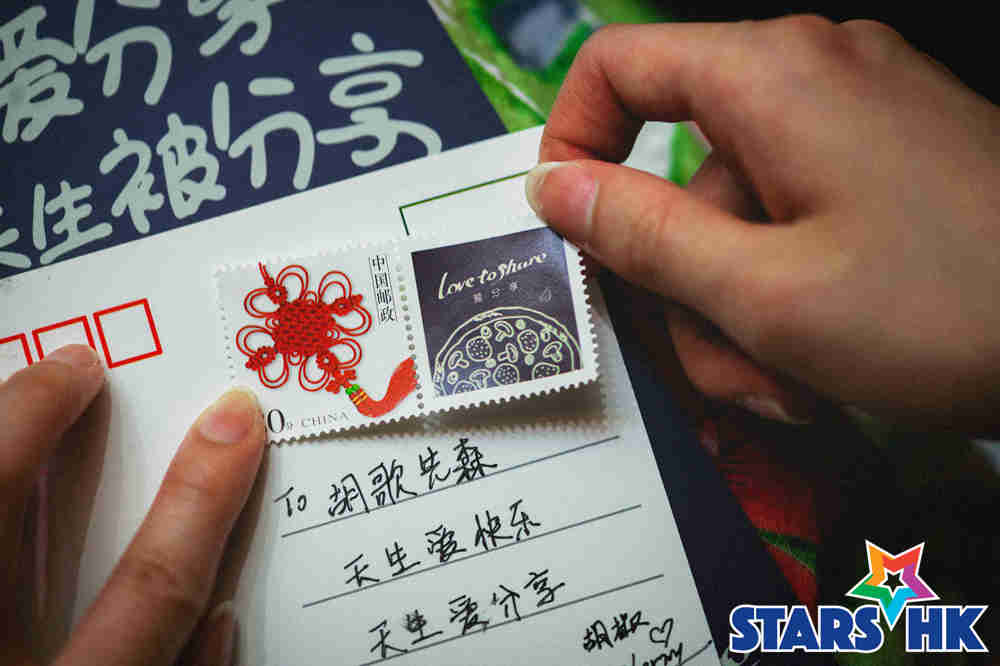 爱分享
天生被分享
中国邮政
0分 CHINA
Love to share
爱分享
To 胡歌先森
天生爱快乐
天生爱分享
胡椒
STARS HK